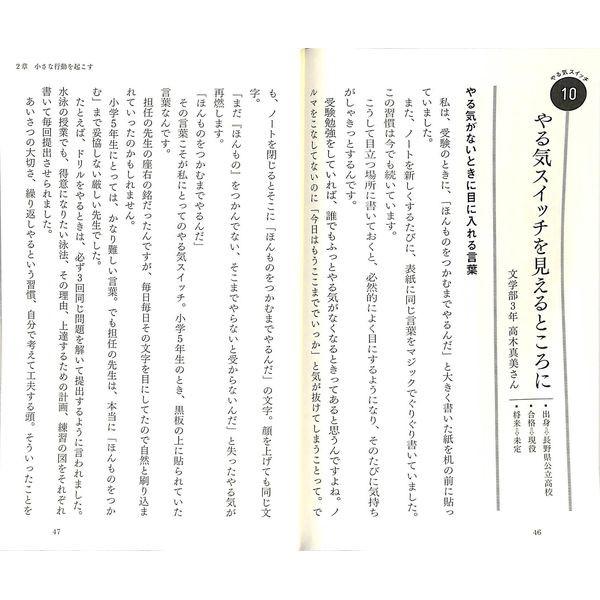 やる気スイッチ
10
やる気スイッチを見えるところに
文学部3年 高木真美さん
・出身⇨長野県公立高校
・合格⇨現役
・将来⇨未定
やる気がないときに目に入れる言葉
私は、受験のときに、「ほんものをつかむまでやるんだ」と大きく書いた紙を机の前に貼っ
ていました。
また、ノートを新しくするたびに、表紙に同じ言葉をマジックでぐりぐり書いていました。
この習慣は今でも続いています。
こうして目立つ場所に書いておくと、必然的によく目にするようになり、そのたびに気持ち
がしゃきっとするんです。
受験勉強をしていれば、誰でもふっとやる気がなくなるときってあると思うんですよね。ノ
ルマをこなしてないのに「今日はもうここまででいっか」と気が抜けてしまうことって。で
46
2章 小さな行動を起こす
も、ノートを閉じるとそこに「ほんものをつかむまでやるんだ」の文字。顔を上げても同じ文
字。
「まだ『ほんもの』をつかんでない、そこまでやらないと受からないんだ」と失ったやる気が
再燃します。
「ほんものをつかむまでやるんだ」
その言葉こそが私にとってのやる気スイッチ。小学5年生のとき、黒板の上に貼られていた
言葉なんです。
担任の先生の座右の銘だったんですが、毎日毎日その文字を目にしてたので自然と刷り込ま
れていったのかもしれません。
小学5年生にとっては、かなり難しい言葉。でも担任の先生は、本当に「ほんものをつか
む」まで妥協しない厳しい先生でした。
たとえば、ドリルをやるときは、必ず3回同じ問題を解いて提出するように言われました。
水泳の授業でも、得意になりたい泳法、その理由、上達するための計画、練習の図をそれぞれ
書いて毎回提出させられました。
あいさつの大切さ、繰り返しやるという習慣、自分で考えて工夫する頭。そういったことを
47